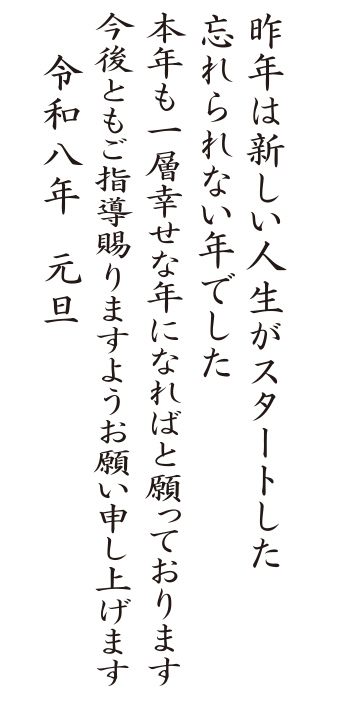 昨年は新しい人生がスタートした
忘れられない年でした
本年も一層幸せな年になればと願っております
今後ともご指導賜りますようお願い申し上げます
令和八年　元旦